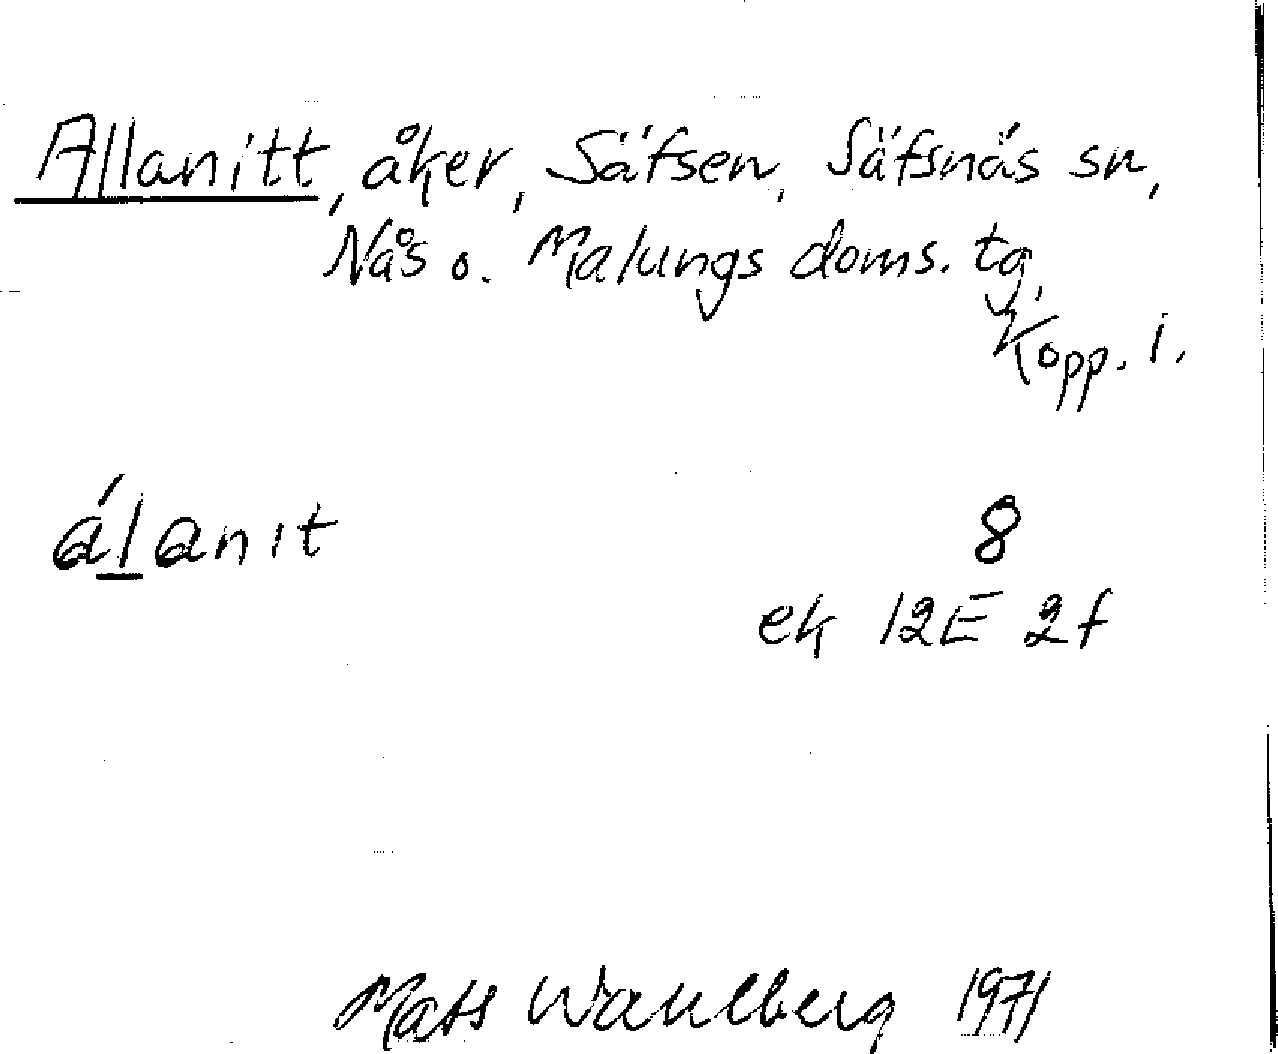 Allanitt, åker, Säfsen, Säfsnäs sn,
Nås o. Malungs doms. tg,
Kopp. l.
ál̲anıt
8
ek 12E 2f
Mats Wahlberg 1971